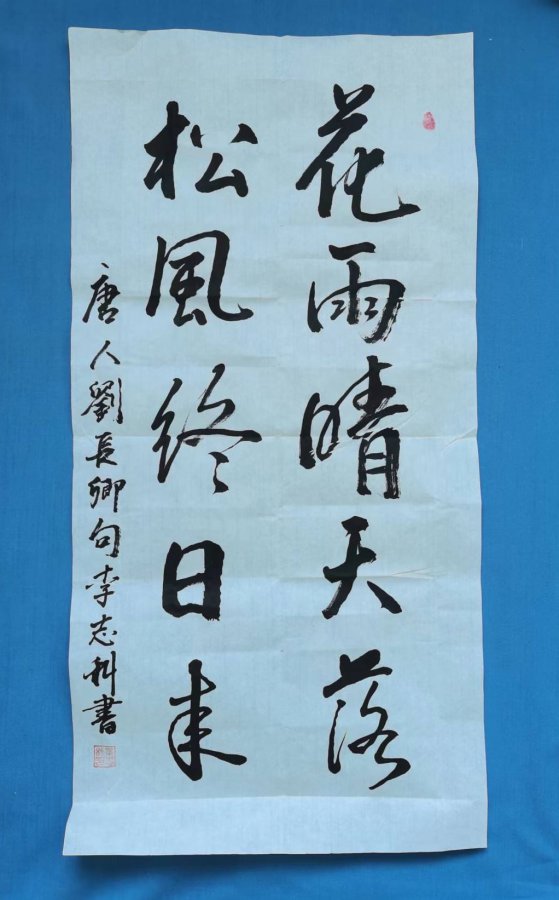 花雨晴天落
松風終日来
唐人劉長卿句李志科書